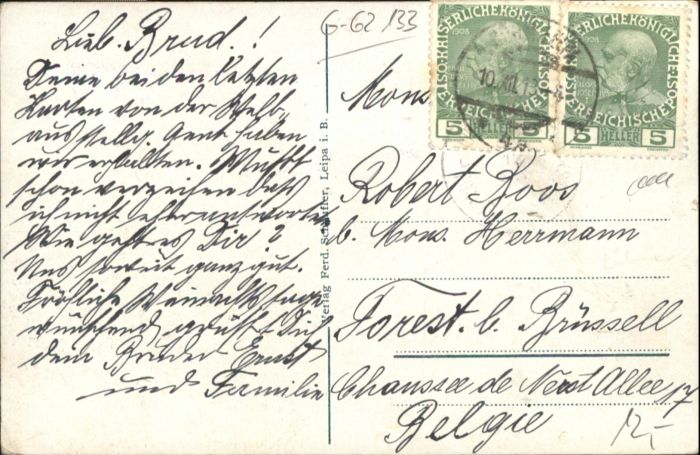 6-62 133
Lieb. Brud.!
Deine beiden letzten
Karten von der Welt-
ausstellg. Gent haben
wir erhalten. Mußt
schon verzeihen daß
ich nicht antworte
Wie geht es Dir?
Uns soweit ganz gut.
Fröhliche Weinachtstage
wünschend, grüßt Dich
dein Bruder Ernst
und Familie
Verlag Ferd. Leipa i. B.
KAISERLICHE KÖNIGLICHE
ÖSTERREICHISCHE POST
1908
5 HELLER 5
KAISERLICHE KÖNIGLICHE
ÖSTERREICHISCHE POST
1908
5 HELLER 5
10.XII.13
Mons.
Robert Roos
b. Mons. Herrmann
Forest b. Brüssell
Chaussee de Nerst Allee 17
Belgie
12,-